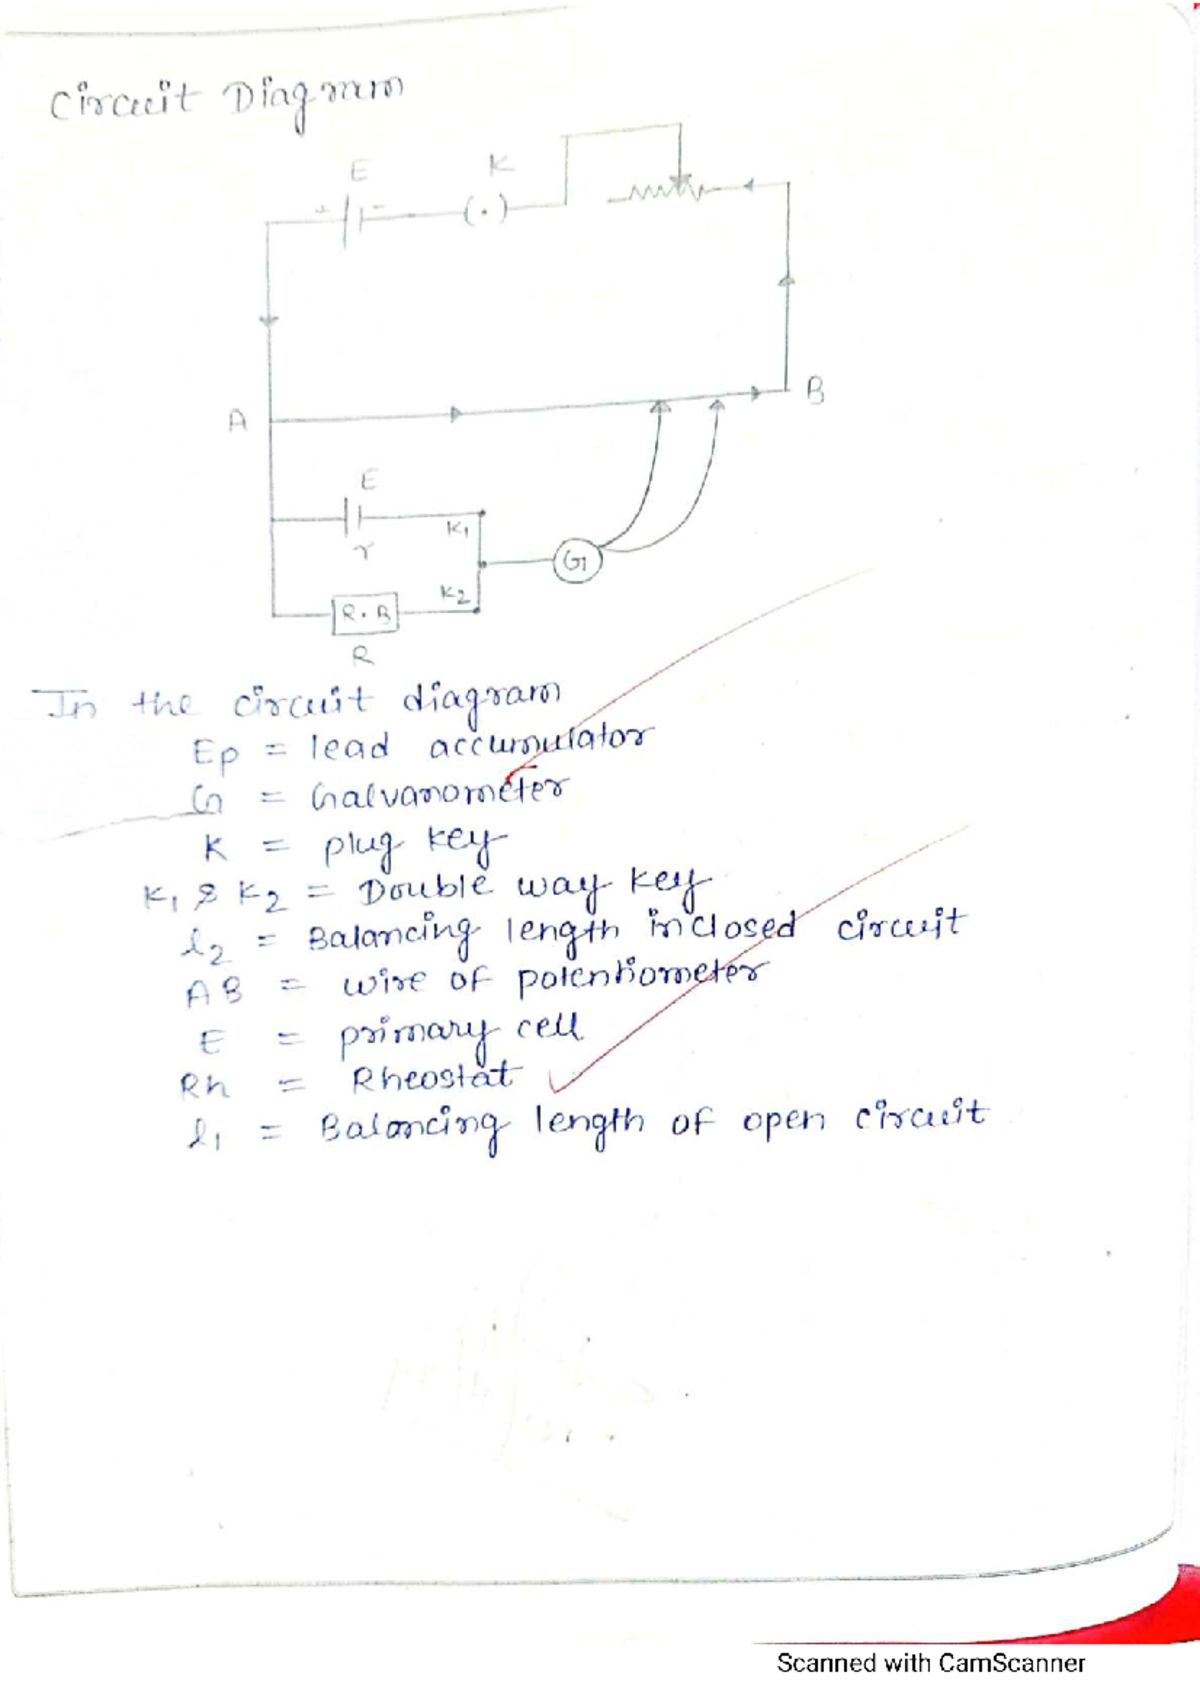 Circuit Diagram
E K
+ -
(.)
A B
E
K1
r
G
K2
R.B
R
In the circuit diagram
Ep = lead accumulator
G = Galvanometer
K = plug key
K1 & K2 = Double way key
l2 = Balancing length in closed circuit
AB = wire of potentiometer
E = primary cell
Rh = Rheostat
l1 = Balancing length of open circuit
Scanned with CamScanner